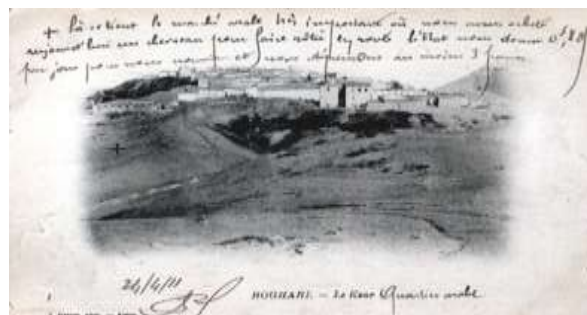 + là se tient le marché arabe très important où nous avons acheté
aujourd'hui un chevreau pour faire rôtir en route l'Etat nous donne 0f,80
par jour pour nous nourrir et nous dépensons au moins 3 francs
24/4/11
BOGHARI — Le Ksar Quartier arabe